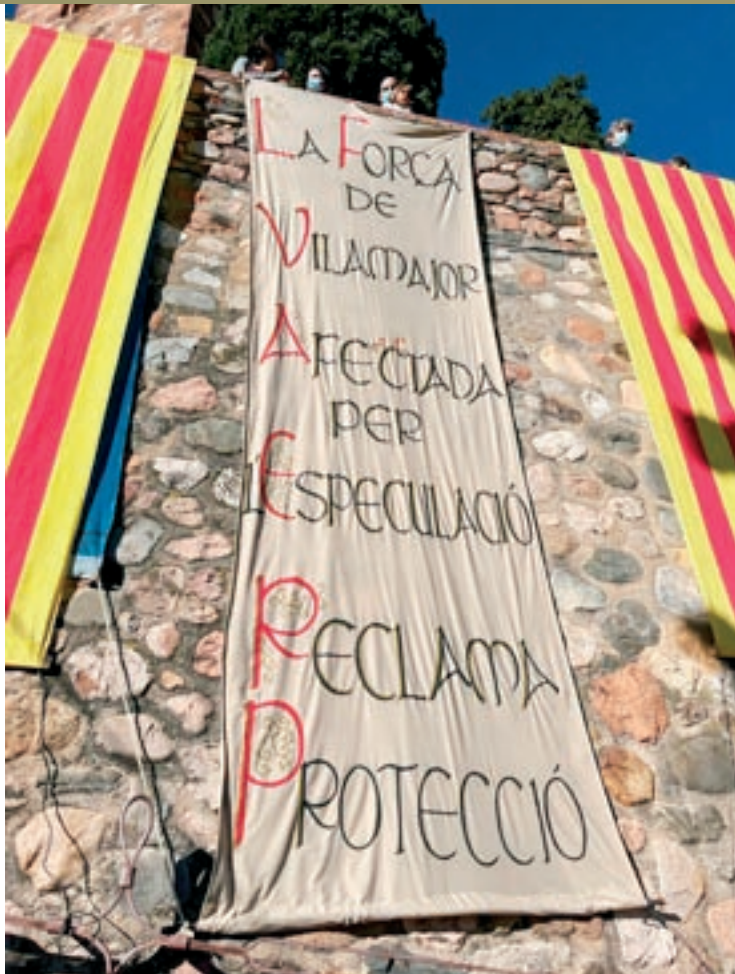 LA FORÇA
DE
VILAMAJOR
AFECTADA
PER
L'ESPECULACIÓ
RECLAMA
PROTECCIÓ